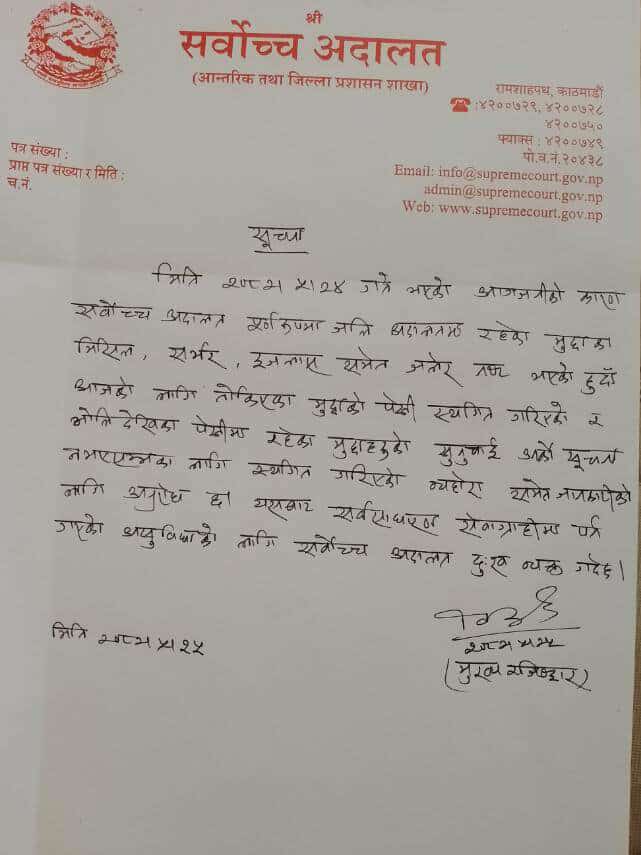 श्री
सर्वोच्च अदालत
(आन्तरिक तथा जिल्ला प्रशासन शाखा)
रामशाहपथ, काठमाडौं
:४२००७२९, ४२००७२८
४२००७५०
फ्याक्स : ४२००७४९
पो.व.नं.२०४३८
Email: info@supremecourt.gov.np
admin@supremecourt.gov.np
Web: www.supremecourt.gov.np
पत्र संख्या :
प्राप्त पत्र संख्या र मिति :
च.नं.
सूचना
मिति २०८२।५।२४ गते भएको आगजनीको कारण
सर्वोच्च अदालत पूर्णरुपमा जलि अदालतमा रहेका मुद्दाका
मिसिल, सर्भर, इजलास समेत जलेर नष्ट भएको हुँदा
आजको लागि तोकिएका मुद्दाको पेशी स्थगित गरिएको र
भोलि देखिका पेशीमा रहेका मुद्दाहरुको सुनुवाई अर्को सूचना
नभएसम्मका लागि स्थगित गरिएको व्यहोरा समेत जानकारीको
लागि अनुरोध छ। यसबाट सर्वसाधारण सेवाग्राहीमा पर्न
गएको असुविधाको लागि सर्वोच्च अदालत दुःख व्यक्त गर्दछ।
२०८२।५।२५
मिति २०८२।५।२५
(मुख्य रजिष्ट्रार)